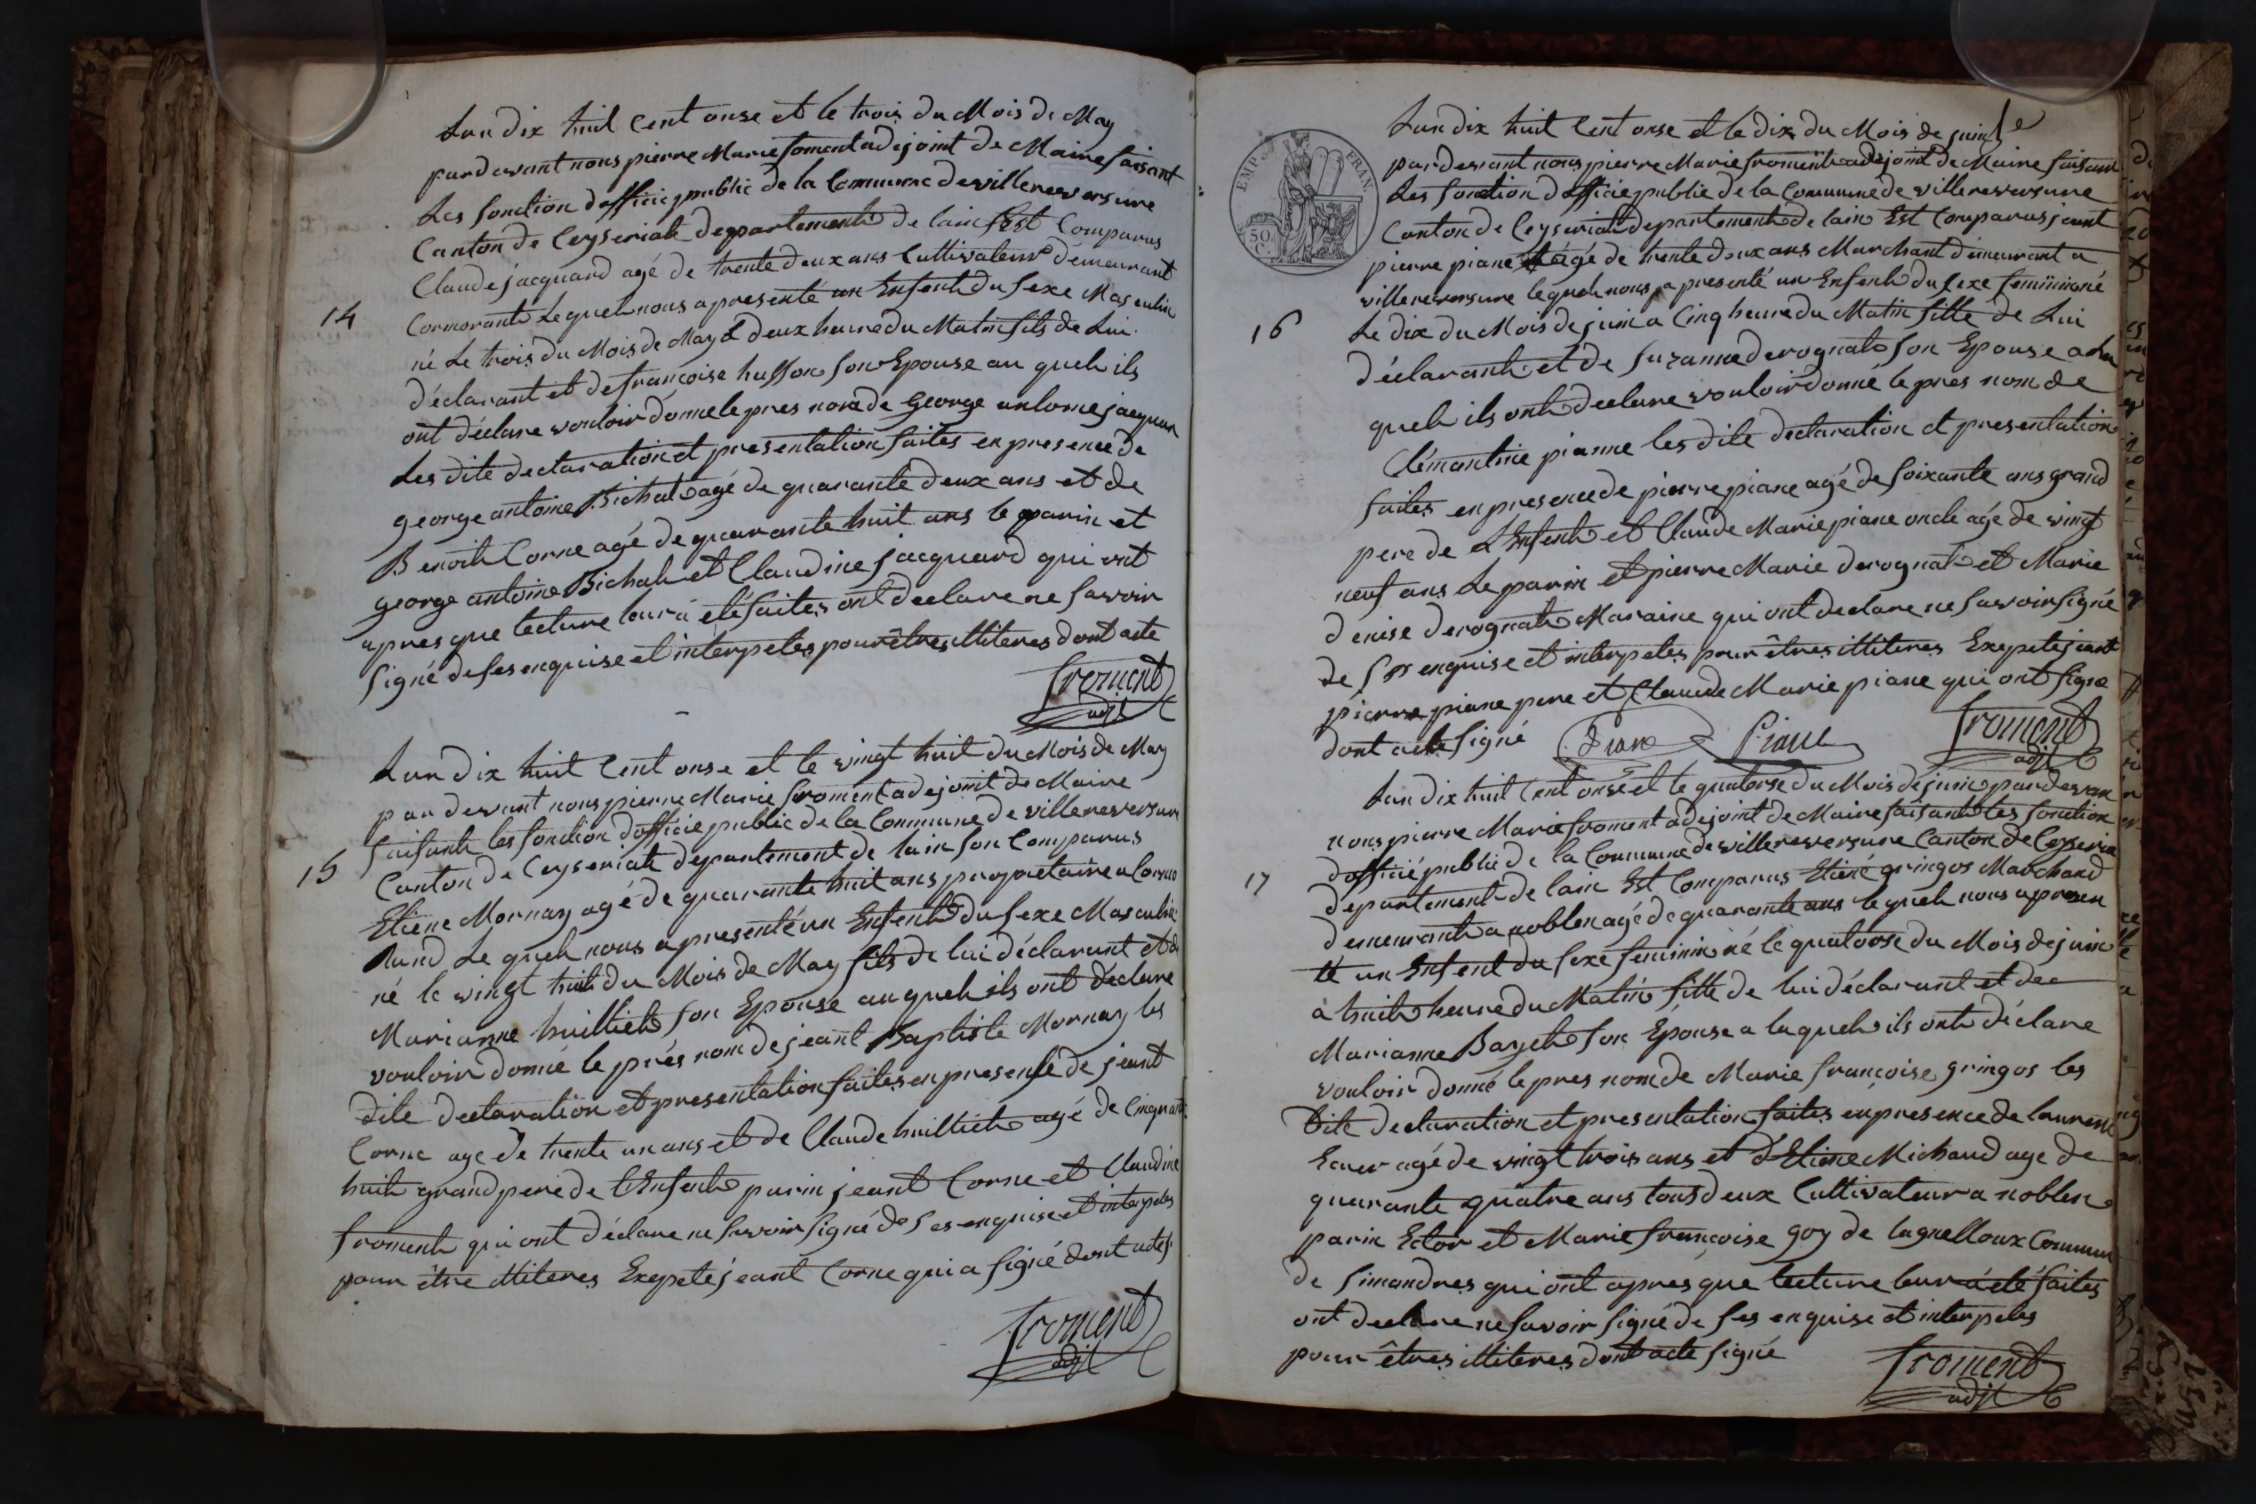 Lan dix huit Cent onse et le trois du Mois de May
par devant nous pierre Marie froment adejoint de Maire faisant
Les fonction d officie public de la Commune de villereversure
Canton de Ceyseriat departement de lain Est Comparus
Claude jacquard agé de trente deux ans Cultivateur demeurant a
14
Cormorant Le quel nous a presenté un Enfent du sexe Masculin
né Le trois du Mois de May a deux heure du Matin fils de Lui
déclarant et de françoise husson son Epouse au quel ils
ont déclare vouloir donne le pres nom de George antoine jacquar
Les dite declaration et presentation faites en presence de
george antoine Bichat agé de quarante deux ans et de
Benoit Corne agé de quarante huit ans le parin et
george antoine Bichat et Claudine jacquard qui ont
apres que lecture leur a été faites ont declare ne savoir
signé de ses enquise et interpeles pour êtres illiteres dont acte
froment
adjt
Lan dix huit Cent onse et le vingt huit du Mois de May
par devant nous pierre Marie froment adejoint de Maire
faisant les fonction d officie public de la Commune de villereversure
15
Canton de Ceyseriat departement de lain son Comparus
Etiene Mornay agé de quarante huit ans propriétaire a Cormo
Rand Le quel nous a presenté un Enfent du sexe Masculin
né le vingt huit du Mois de May fils de lui déclarant et de
Marianne huilliet son Epouse au quel ils ont déclare
vouloir donné le prés nom de jeant Baptiste Mornay les
dite declaration et presentation faites en presense de jeant
Corne age de trente un ans et de Claude huilliet agé de Cinquante
huit grand pere de l'Enfent parin jeant Corne et Claudine
froment qui ont déclare ne savoir signé de ses enquise et interpeles
pour être illiteres Exepete jeant Corne qui a signé dont acte
froment
adjt
EMP FRAN.
50
Lan dix huit Cent onse et le dix du Mois de juin
par devant nous pierre Marie froment adejoint de Maire faisant
Les fonction d officie public de la Commune de villereversure
Canton de Ceyseriat departement de lain Est Comparus jeant
pierre piane agé de trente deux ans Marchant demeurant a
villereversure le quel nous a presenté un Enfent du sexe feminin né
16
Le dix du Mois de juin a Cinq heure du Matin fille de Lui
déclarant et de Suzanne derognat son Epouse a la
quel ils ont declare vouloir donné le pres nom de
Clémantine pianne les dite declaration et presentation
faites en presence de pierre piane agé de soixante ans grand
pere de L'Enfent et Claude Marie piane oncle agé de vingt
neuf ans Le parin et pierre Marie derognat et Marie
denise derognat Maraine qui ont declare ne savoir signé
de ses enquise et interpeles pour êtres illiteres Exepete jeant
pierre piane pere et Claude Marie piane qui ont signe
dont acte signé Piane Piane froment
adjt
Lan dix huit Cent onse et le quatorse du Mois de juin par devan
nous pierre Marie froment adejoint de Maire faisant les fonction
d officié public de la Commune de villereversure Canton de Ceyseria
17
departement de lain Est Comparus Etiené gringos Marchand
demeurant a noblen agé de quarante ans le quel nous a presen
té un Enfent du sexe feminin né le quatorse du Mois de juin
a huit heure du Matin fille de lui déclarant et de
Marianne Bayet son Épouse a la quel ils ont déclare
vouloir donné le pres nom de Marie françoise gringos les
dite declaration et presentation faites en presence de laurent
Ecuer agé de vingt trois ans et d'Etiene Michaud age de
quarante quatre ans tous deux Cultivateur a noblen
parin Ector et Marie françoise goy de lagnelloux Commun
de Simandres qui ont aprés que lecture leur a été faites
ont declare ne savoir signé de ses enquise et interpeles
pour êtres illiteres dont acte signé
froment
adjt